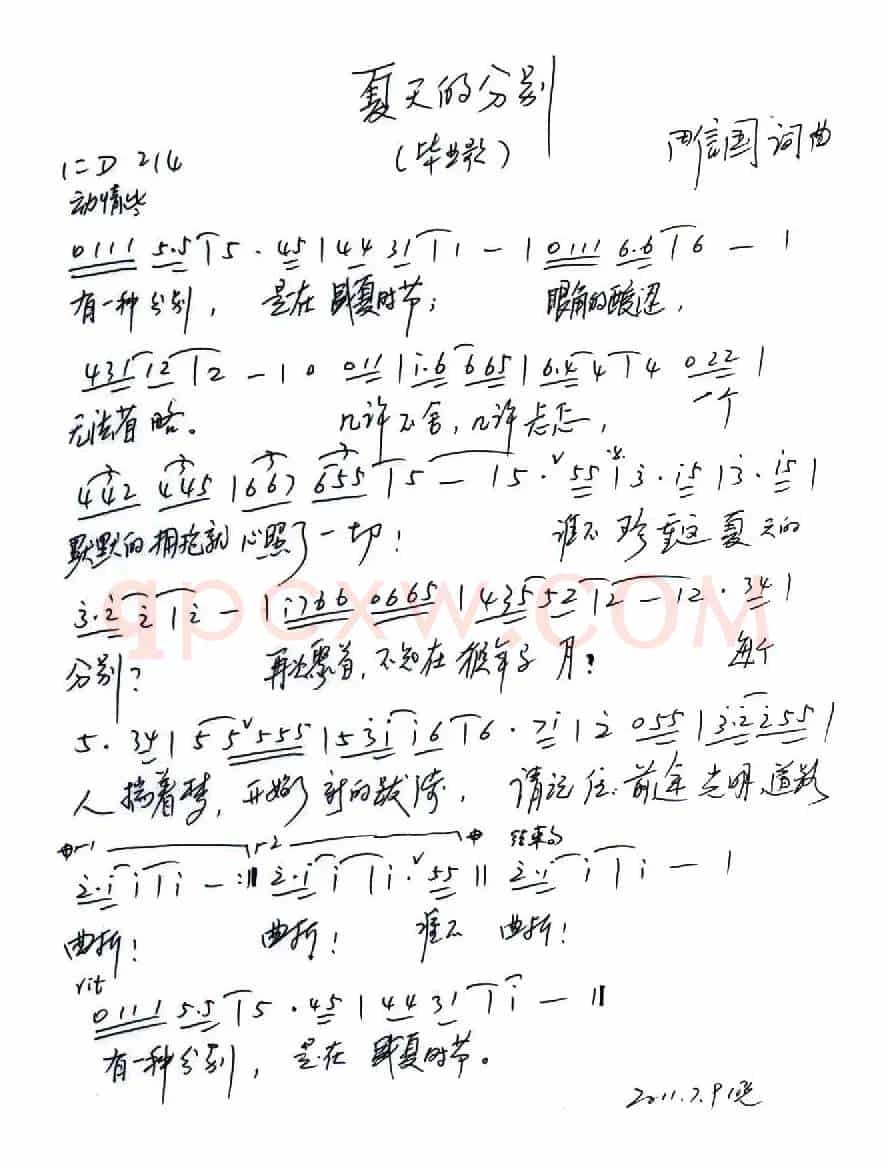 夏天的分别
(毕业歌)
1=D 2/4
信国 词曲
动情地
0111 5.5 | 5 · 45 | 44 31 | 1 - | 0111 6.6 | 6 - |
有一种分别, 是在盛夏时节; 眼角的酸涩,
431 12 | 2 - | 0 011 | i.6 665 | 6.4 4 | 4 022 |
无法省略。 几许不舍,几许忐忑, 一个
442 445 | 667 655 | 5 - | 5 · 55 | 3 · i5 | 3 · i5 |
默默的拥抱就心照了一切! 谁不珍重这夏天的
3.2 2 | 2 - | i766 0665 | 435 52 | 2 - | 2 · 34 |
qpcxw.COM
分别? 再次聚首,不知在猴年马月? 每个
5 · 34 | 5 5 555 | 5 3i i6 | 6 · 7i | 2 055 | 3.2 255 |
人揣着梦,开始了新的跋涉, 请记住:前途光明、道路
r1 r2 结束句
2.i i | i - :‖ 2.i i | i · 55 ‖ 2.i i | i - |
曲折! 曲折! 谁不 曲折!
rit
0111 5.5 | 5 · 45 | 44 31 | i - ‖
有一种分别, 是在盛夏时节。
2011.7.9